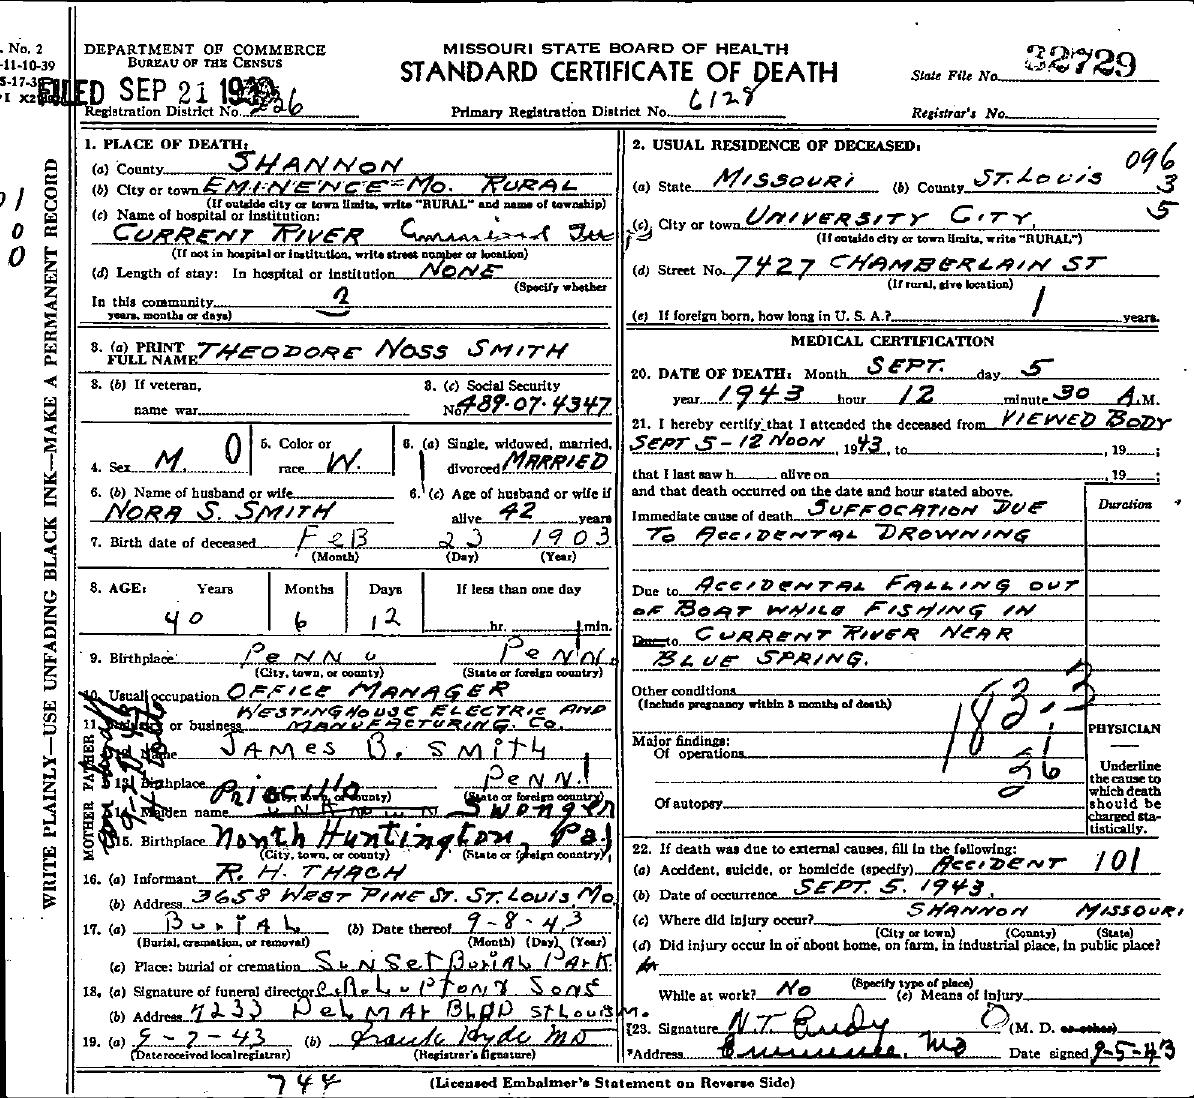 . No. 2
-11-10-39
5-17-39
I X2
DEPARTMENT OF COMMERCE
BUREAU OF THE CENSUS
FILED SEP 21
Registration District No. 226
MISSOURI STATE BOARD OF HEALTH
STANDARD CERTIFICATE OF DEATH
Primary Registration District No. 6128
State File No. 32729
Registrar's No.
WRITE PLAINLY—USE UNFADING BLACK INK—MAKE A PERMANENT RECORD
01
0
0
1. PLACE OF DEATH:
(a) County SHANNON
(b) City or town EMINENCE-MO. RURAL
(If outside city or town limits, write "RURAL" and name of township)
(c) Name of hospital or institution:
CURRENT RIVER
(If not in hospital or institution, write street number or location)
(d) Length of stay: In hospital or institution NONE
(Specify whether
In this community 2
years, months or days)
3. (a) PRINT FULL NAME THEODORE NOSS SMITH
3. (b) If veteran,
name war
3. (c) Social Security
No. 489-07-4347
4. Sex M. 0
5. Color or race W.
6. (a) Single, widowed, married, divorced MARRIED
6. (b) Name of husband or wife
NORA S. SMITH
6. (c) Age of husband or wife if alive 42 years
7. Birth date of deceased FEB 23 1903
(Month) (Day) (Year)
8. AGE: Years Months Days If less than one day
40 6 12 hr. min.
9. Birthplace PENN PENN.
(City, town, or county) (State or foreign country)
10. Usual occupation OFFICE MANAGER
11. Industry or business WESTINGHOUSE ELECTRIC AND MANUFACTURING. CO.
FATHER
12. Name JAMES B. SMITH
13. Birthplace PENN.
(City, town, or county) (State or foreign country)
MOTHER
14. Maiden name Priscilla UNKNOWN Swonger
15. Birthplace North Huntington, Pa
(City, town, or county) (State or foreign country)
16. (a) Informant R. H. THACH
(b) Address 3658 WEST PINE ST. ST. LOUIS, MO.
17. (a) Burial (b) Date thereof 9-8-43
(Burial, cremation, or removal) (Month) (Day) (Year)
(c) Place: burial or cremation Sunset Burial Park
18. (a) Signature of funeral director C.R. Lupton & Sons
(b) Address 7233 Delmar Blvd St Louis Mo.
19. (a) 9-7-43 (b) Frank Hyde MD
(Date received local registrar) (Registrar's Signature)
744
2. USUAL RESIDENCE OF DECEASED:
096
3
5
(a) State MISSOURI (b) County ST. LOUIS
(c) City or town UNIVERSITY CITY,
(If outside city or town limits, write "RURAL")
(d) Street No. 7427 CHAMBERLAIN ST
(If rural, give location)
(e) If foreign born, how long in U. S. A.? years.
MEDICAL CERTIFICATION
20. DATE OF DEATH: Month SEPT. day 5
year 1943 hour 12 minute 30 A.M.
21. I hereby certify that I attended the deceased from VIEWED BODY
SEPT 5-12 NOON, 1943, to , 19 ;
that I last saw h alive on , 19 ;
and that death occurred on the date and hour stated above.
Duration
Immediate cause of death SUFFOCATION DUE
TO ACCIDENTAL DROWNING
Due to ACCIDENTAL FALLING OUT
OF BOAT WHILE FISHING IN
Due to CURRENT RIVER NEAR
BLUE SPRING.
Other conditions
(Include pregnancy within 3 months of death)
183.3
Major findings:
Of operations
Of autopsy
PHYSICIAN
Underline the cause to which death should be charged statistically.
22. If death was due to external causes, fill in the following:
(a) Accident, suicide, or homicide (specify) ACCIDENT 101
(b) Date of occurrence SEPT. 5. 1943.
(c) Where did injury occur? SHANNON MISSOURI
(City or town) (County) (State)
(d) Did injury occur in or about home, on farm, in industrial place, in public place?
(Specify type of place)
While at work? No (e) Means of Injury
23. Signature N.T. (M. D. or other)
Address Eminence, Mo Date signed 9-5-43
(Licensed Embalmer's Statement on Reverse Side)